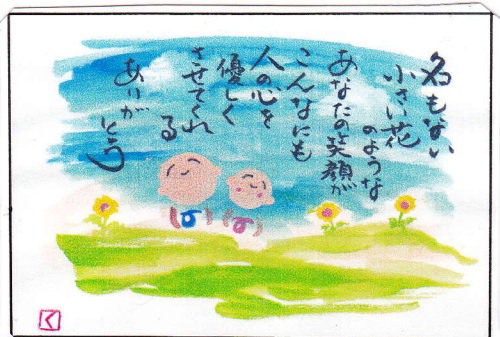 名もない
小さい花
のような
あなたの笑顔が
こんなにも
人の心を
優しく
させてくれ
る
ありが
とう
く